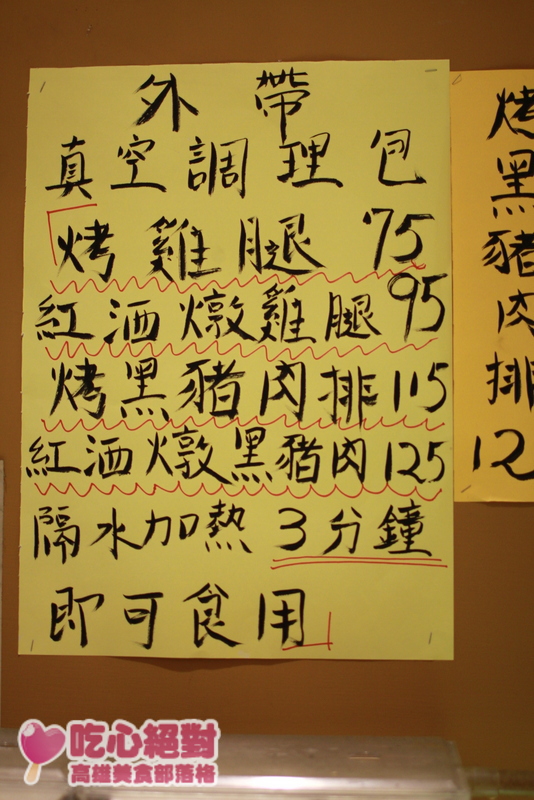 外帶
真空調理包
「烤雞腿 75
紅酒燉雞腿 95
烤黑豬肉排 115
紅酒燉黑豬肉 125
隔水加熱 3分鐘
即可食用」
烤黑豬肉排
12
吃心絕對
高雄美食部落格